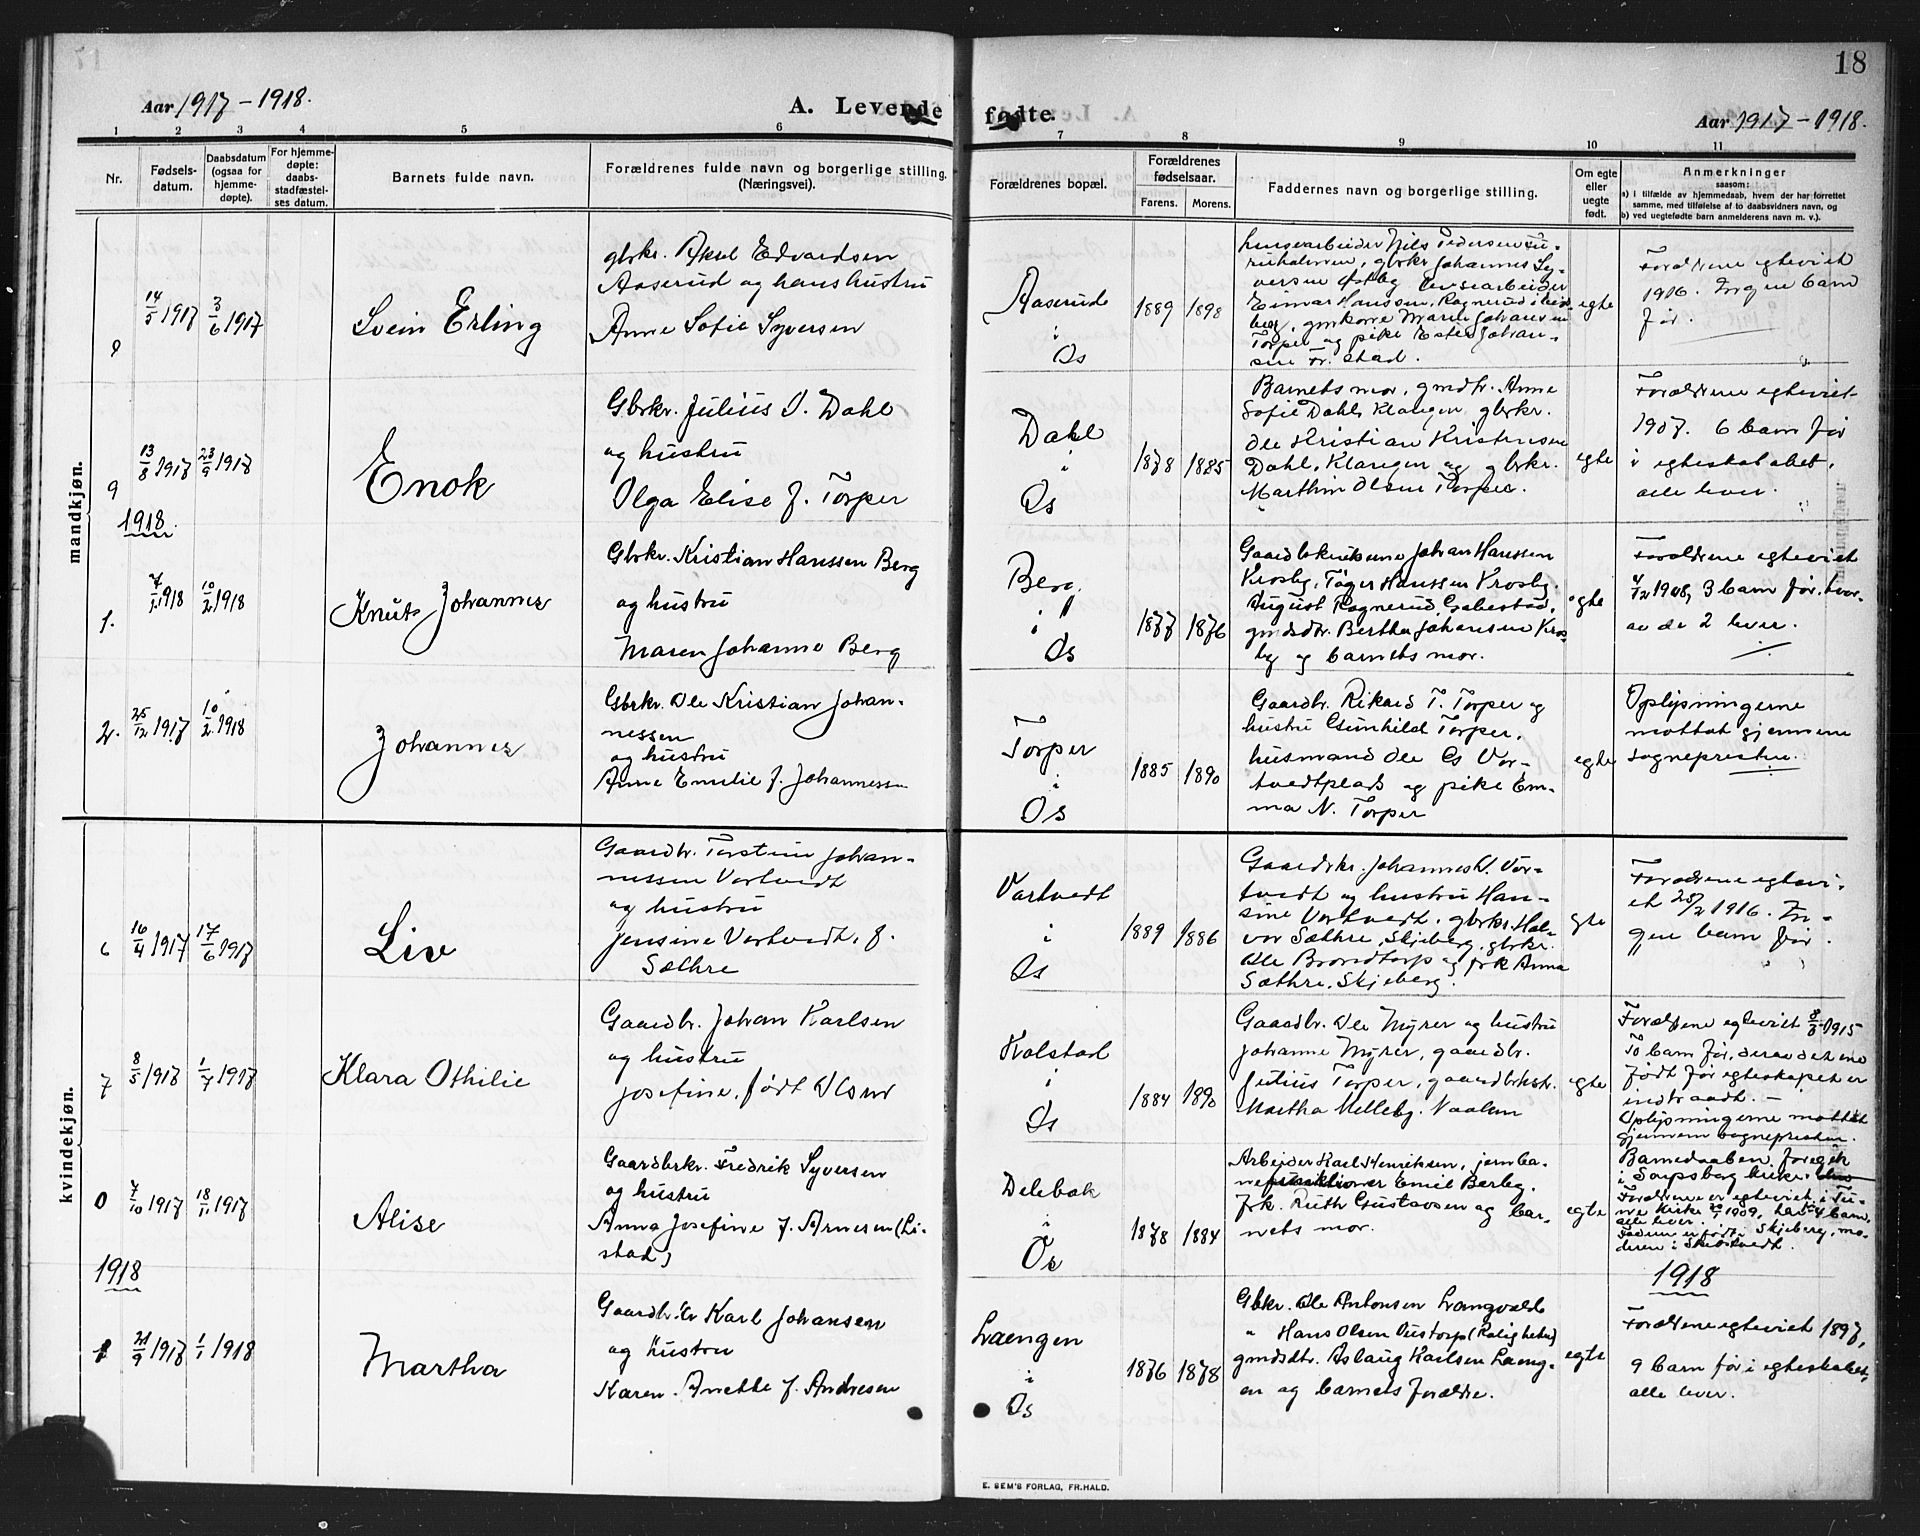 18
Aar 1917-1918.
A. Levende fødte.
Aar 1917-1918.
1 2 3 4 5 6 7 8 9 10 11
Nr.
Fødsels-
datum.
Daabsdatum
(ogsaa for
hjemme-
døpte).
For hjemme-
døpte:
daabs-
stadfæstel-
ses datum.
Barnets fulde navn.
Forældrenes fulde navn og borgerlige stilling.
(Næringsvei).
Forældrenes bopæl.
Forældrenes
fødselsaar.
Farens. Morens.
Faddernes navn og borgerlige stilling.
Om egte
eller
uegte
født.
Anmerkninger
saasom:
a) i tilfælde av hjemmedaab, hvem der har forrettet
samme, med tilføielse af to daabsvidners navn, og
b) ved uegtefødte barn anmelderens navn m. v.).
mandkjøn.
8
14/5 1917
3/6 1917
Svein Erling
gbrkr. Aksel Edvardsen
Aaserud og hans hustru
Anne Sofie Syversen
Aaserud
i
Os
1889 1898
Nils Pedersen Fu-
ruholmen, gbrkr Johannes Sy-
versen Østby
Einar Hanssen, Ragnerud i
berg, gmkone Maren Johansen
Torper og pike Ester Johan-
sen Fr. stad.
egte
Forældrene egteviet
1916. Ingen barn
før.
9
13/8 1917
23/9 1917
Enok
Gbrkr. Julius J. Dahl
og hustru
Olga Elise f. Torper
Dahl
i
Os
1878 1885
Barnets mor, gmdtr. Anne
Sofie Dahl, Klangen gbrkr.
Ole Kristian Kristensen
Dahl, Klangen og gbrkr.
Marthin Olsen Torper.
egte
Forældrene egteviet
1907. 6 barn før
i egteskabet,
alle lever.
1918.
1.
7/1 1918
10/2 1918
Knut Johannes
Gbrkr. Kristian Hanssen Berg
og hustru
Maren Johanne Berg
Berg
i
Os
1877 1876
Gaardbrukerne Johan Hanssen
Krosby, Tøger Hanssen Krosby,
August Ragnerud, Gabestad,
gmdsdtr. Bertha Johansen Kros-
by og barnets mor.
egte
Forældrene egteviet
1908, 3 barn før, hvor-
av de 2 lever.
2.
25/12 1917
10/2 1918
Johannes
Gbrkr. Ole Kristian Johan-
nessen
og hustru
Anne Emilie f. Johannessen
Torper
i
Os
1885 1890
Gaardbr. Rikard T. Torper og
hustru Gunhild Torper,
husmand Ole Vor-
tvedtplads og pike Em-
ma N. Torper
egte
Oplysningerne
mottat gjennem
sognepresten.
kvindekjøn.
6
16/4 1917
17/6 1917
Liv
Gaardbr. Torstein Johan-
nessen Vortvedt
og hustru
Jensine Vortvedt, f.
Sæthre
Vortvedt
i
Os
1889 1886
Gaardbrkr. Johannes Vor-
tvedt og hustru Han-
sine Vortvedt, gbrkr. Hal-
vor Sæthre, Skjeberg, gbrkr.
Ole Brondtorp og frk Anna
Sæthre, Skjeberg.
egte
Forældrene egtevi-
et 25/2 1916. In-
gen barn før.
7
8/5 1917
1/7 1917
Klara Othilie
Gaardbr. Johan Karlsen
og hustru
Josefine, født Olsen
Kolstad
i
Os
1884 1890
Gaardbr. Ole Myrer og hustru
Johanne Myrer, gaardbr.
Julius Torper, gaardbrkstr.
Martha Melleby, Vaalen
egte
Forældrene egteviet 8/8 1915
To barn før, derav det ene
født før egteskapet er
indtraadt. —
Oplysningerne mottat
gjennem sognepresten.
0
7/10 1917
18/11 1917
Alise
Gaardbrkr. Fredrik Syversen
og hustru
Anna Josefine f. Arnesen (Li-
stad)
Delebak
i
Os
1878 1884
Arbeider Karl Henriksen, jernba-
nefunktionær Emil Berby,
frk. Ruth Gustavsen og bar-
nets mor.
egte
Barnedaaben foregik
i Sarpsborg kirke.
Forældrene er egteviet i Tu-
ne kirke 1909, har 4 barn,
alle lever.
Faderen er født i Skjeberg, mo-
deren i Skibtvedt.
1918
1918
1
21/9 1917
1/1 1918
Martha
Gaardbr. Karl Johansen
og hustru
Karen Anette f. Andresen
Laengen
i
Os
1876 1878
Gbkr. Ole Antonsen Langvald
" Hans Olsen Oustorp (Roligheten)
gmdsdtr. Aslaug Karlsen Laeng-
en og barnets forældre.
egte
Forældrene egteviet 1897,
9 barn før i egteskabet,
alle lever.
E. SEM'S FORLAG, FR.HALD.